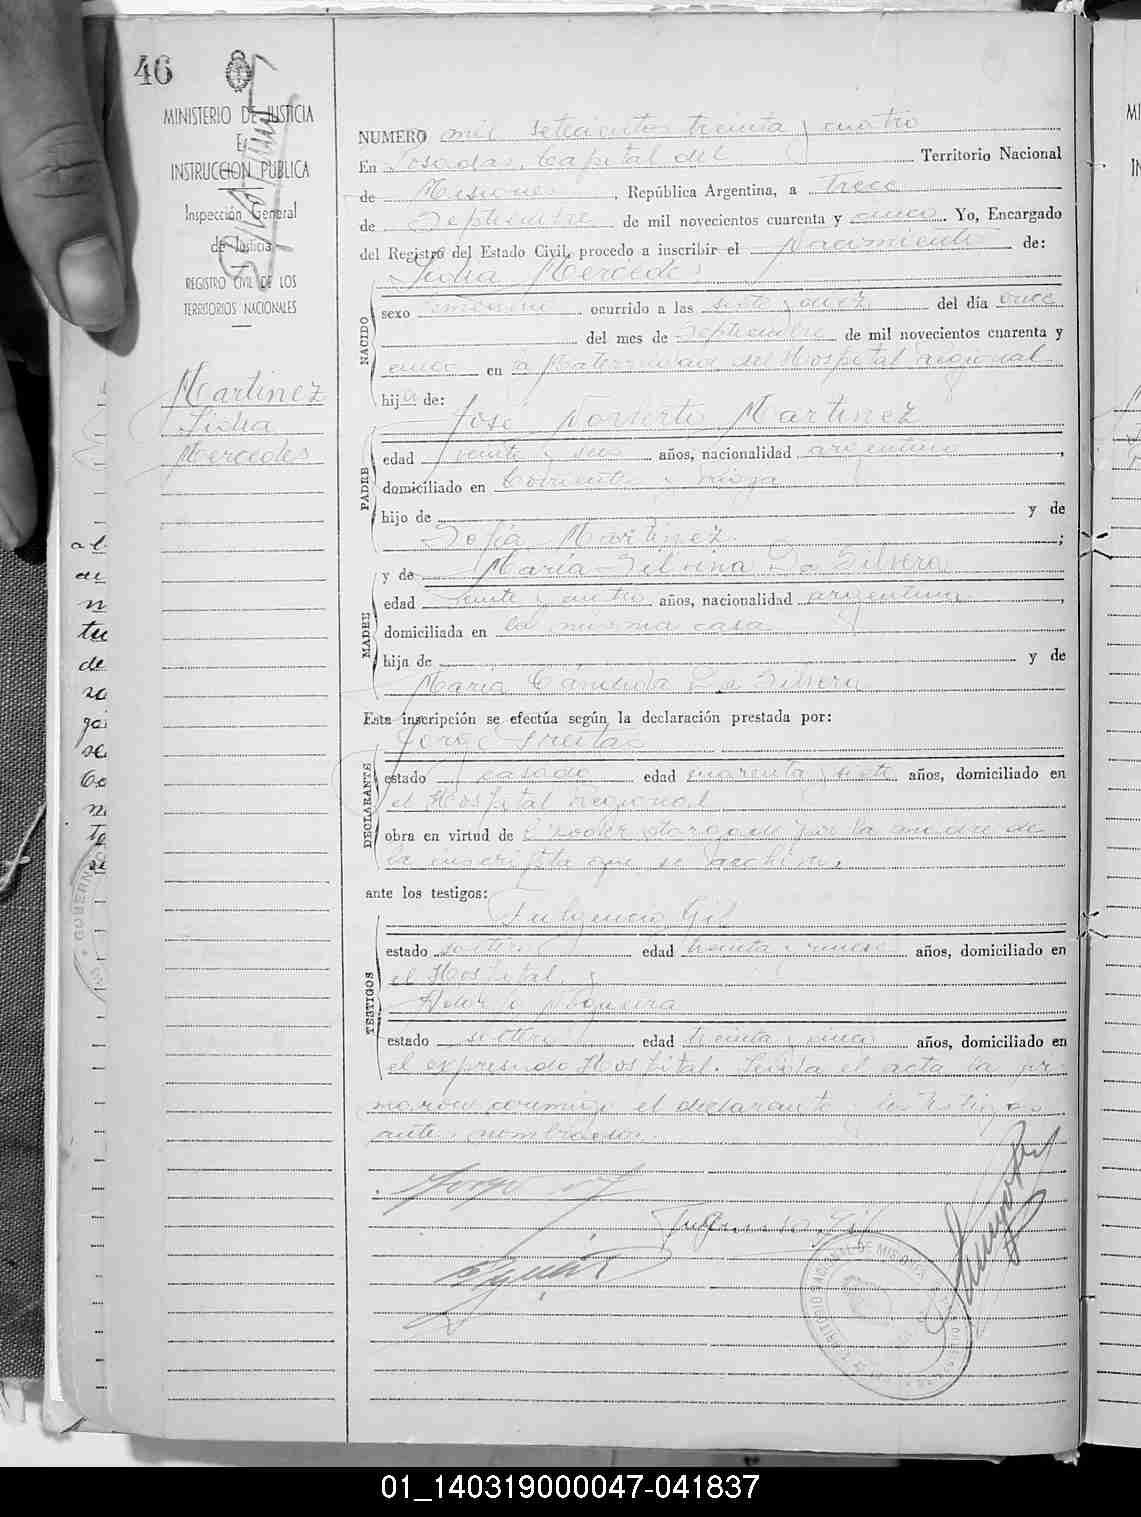 46
MINISTERIO DE JUSTICIA
E
INSTRUCCION PUBLICA
Inspección General
de Justicia
REGISTRO CIVIL DE LOS
TERRITORIOS NACIONALES
Martinez
Mercedes
NUMERO mil setecientos treinta y cuatro
En Posadas, Capital del Territorio Nacional
de Misiones, República Argentina, a trece
de Septiembre de mil novecientos cuarenta y cinco. Yo, Encargado
del Registro del Estado Civil, procedo a inscribir el Nacimiento de:
Mercedes
NACIDO
sexo femenino ocurrido a las siete y diez del día once
del mes de Septiembre de mil novecientos cuarenta y
cinco en la Maternidad del Hospital regional
hija de:
José Norberto Martinez
PADRE
edad veinte y seis años, nacionalidad argentino,
domiciliado en Corrientes y Rioja
hijo de y de
Sofía Martinez;
MADRE
y de María Silvina Da Silvera
edad veinte y cuatro años, nacionalidad argentina,
domiciliada en la misma casa
hija de y de
María Cándida Da Silvera
Esta inscripción se efectúa según la declaración prestada por:
Jorge Freitas
DECLARANTE
estado casado edad cuarenta y siete años, domiciliado en
el Hospital Regional
obra en virtud de poder otorgado por la madre de
la inscripta que se archiva
ante los testigos:
Fulgencio Gil
TESTIGOS
estado soltero edad treinta y nueve años, domiciliado en
el Hospital y
Nogueira
estado soltero edad treinta y cinco años, domiciliado en
el expresado Hospital. Leída el acta la fir
maron conmigo el declarante y los testigos
antes nombrados.
Fulgencio Gil
01_140319000047-041837